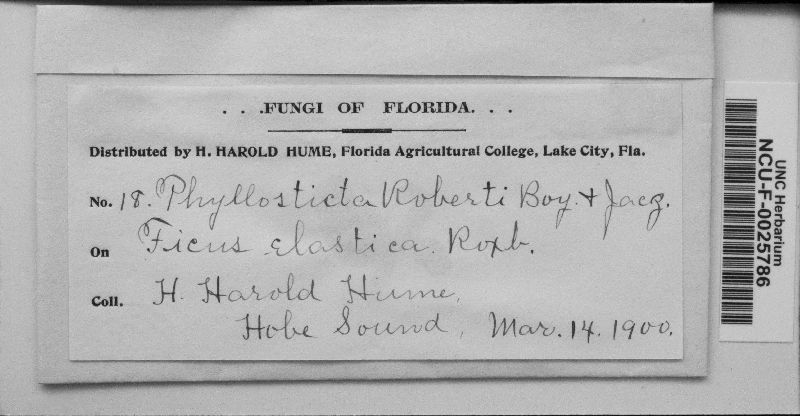 . . .FUNGI OF FLORIDA. . .
Distributed by H. HAROLD HUME, Florida Agricultural College, Lake City, Fla.
No. 18. Phyllosticta Roberti Boy. & Jacz.
On Ficus elastica. Roxb.
Coll. H. Harold Hume,
Hobe Sound, Mar. 14. 1900.
UNC Herbarium
NCU-F-0025786